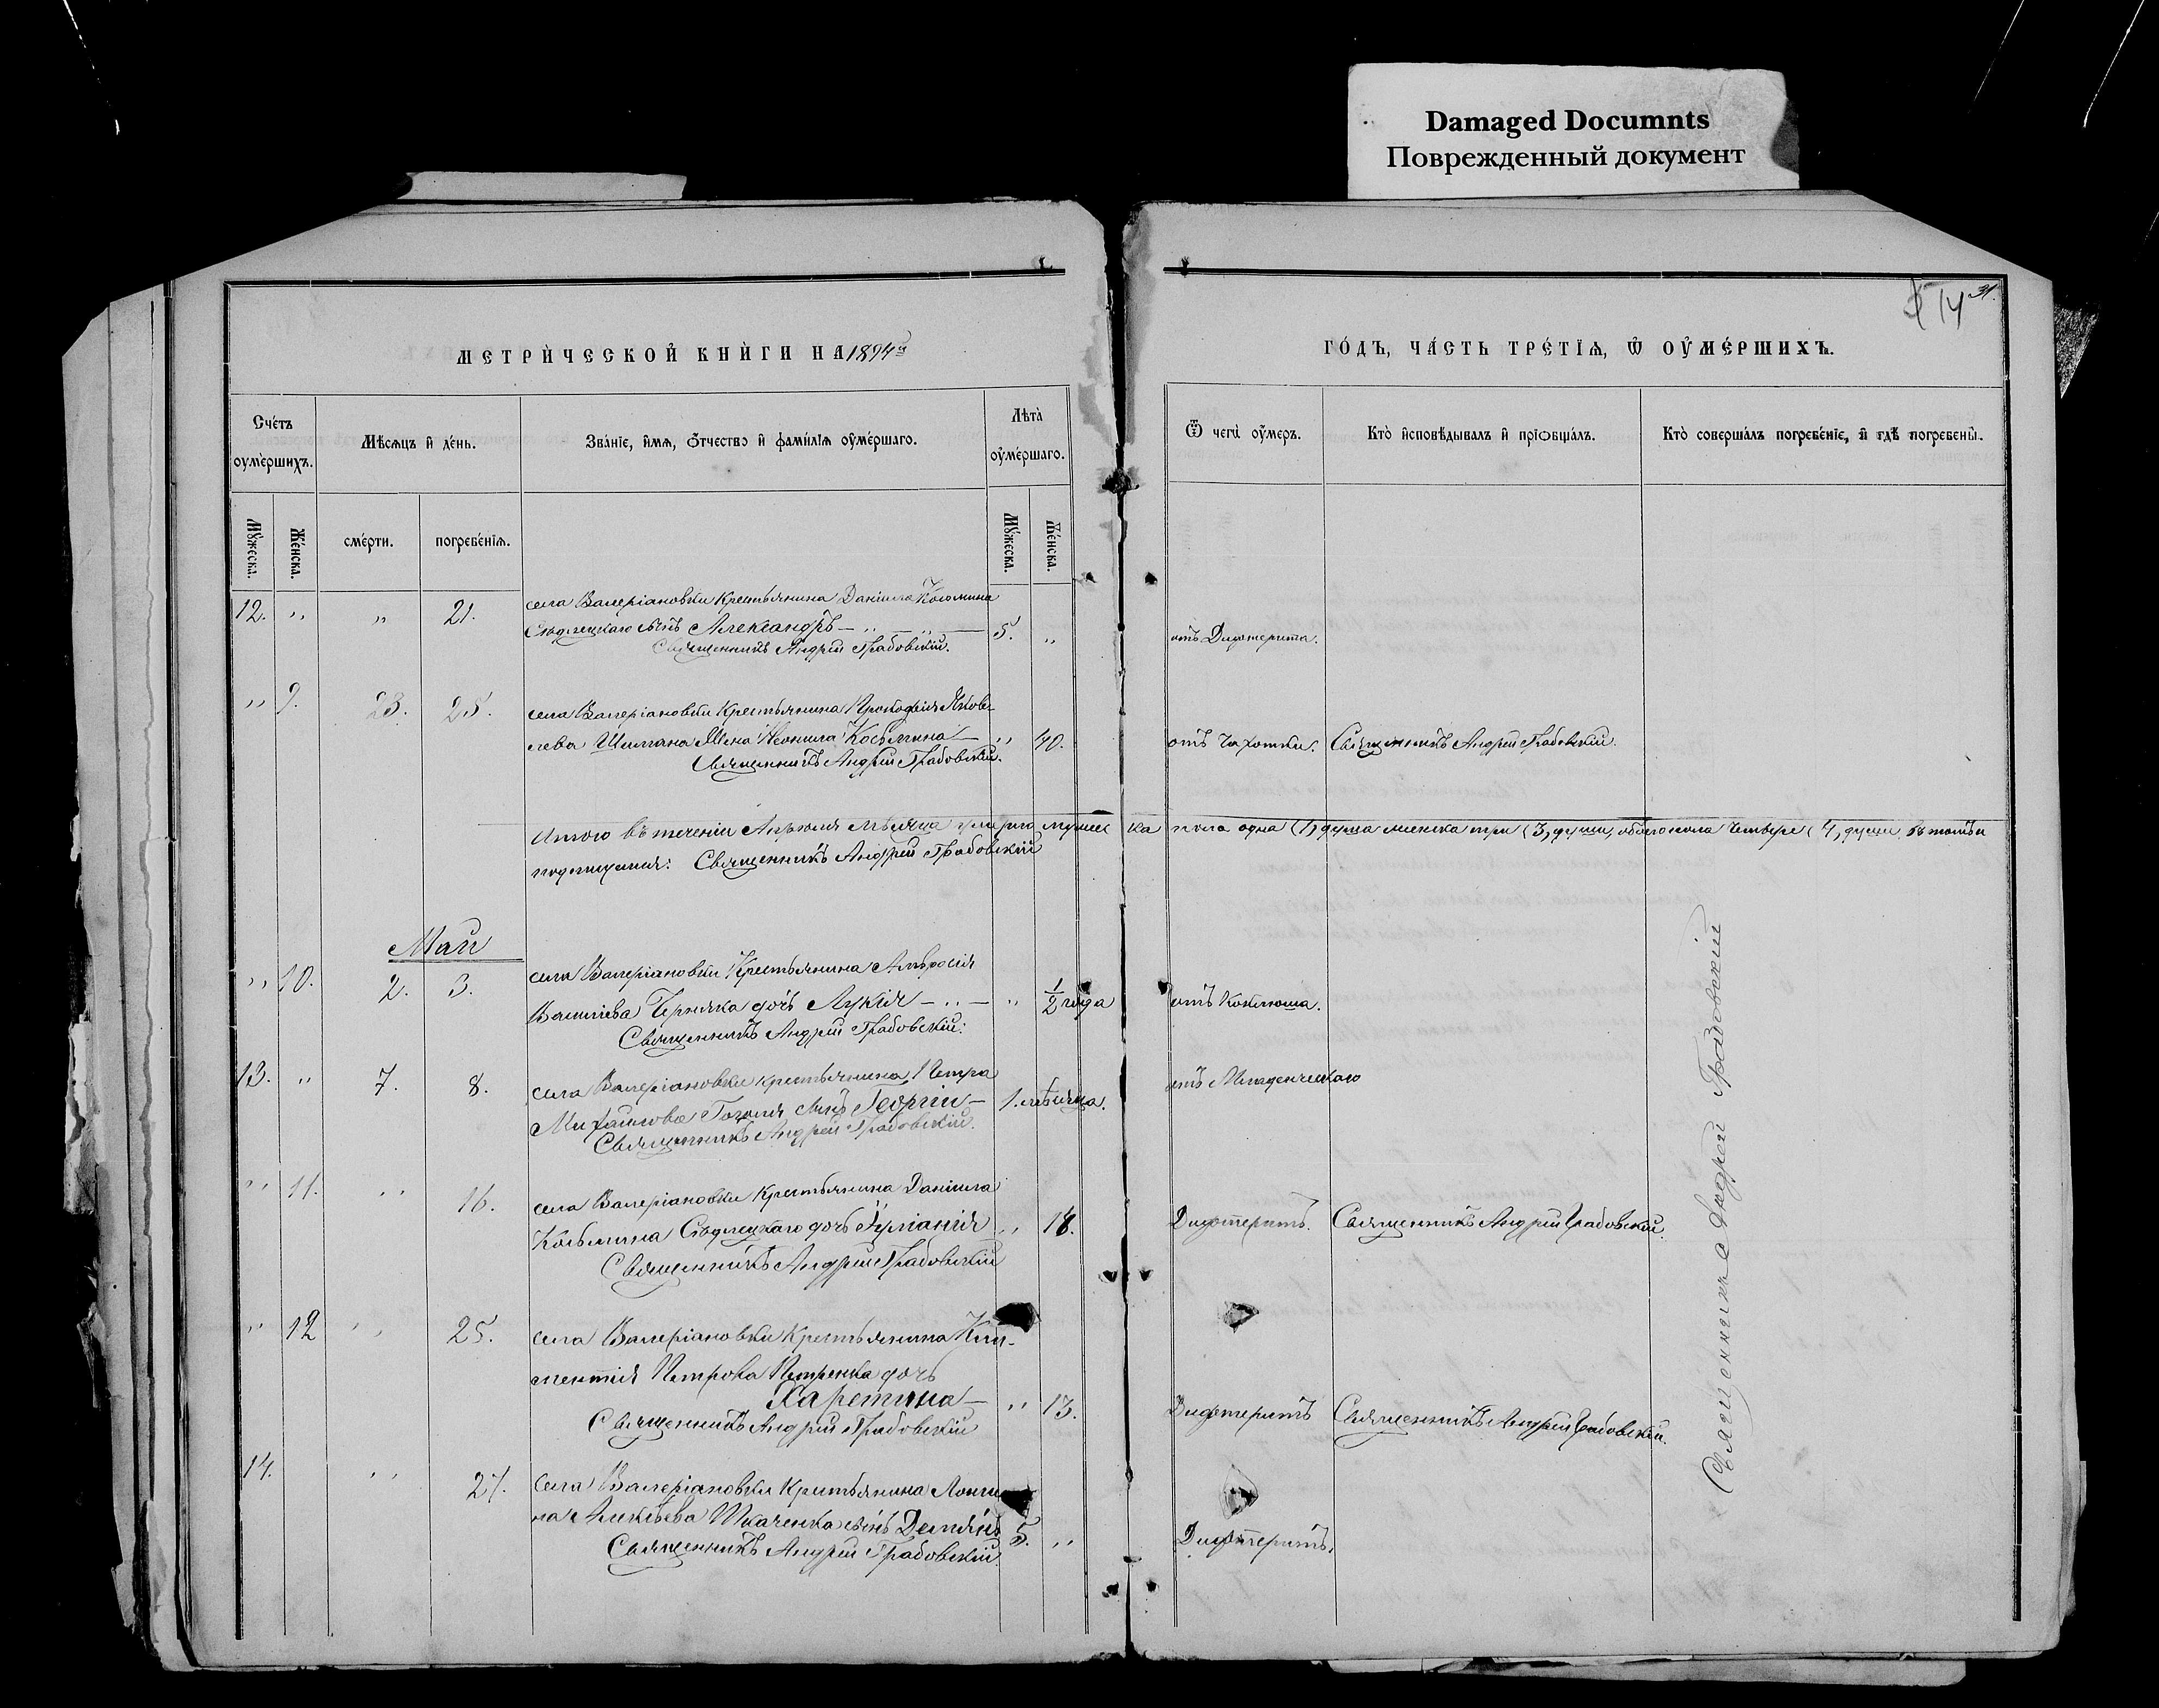 Damaged Documnts
Поврежденный документ
31.
14
МЕТРИЧЕСКОЙ КНИГИ НА 1894й
ГОДЪ, ЧАСТЬ ТРЕТІЯ, Ѿ ОУМЕРШИХЪ.
Счетъ оумершихъ.
Мѣсяцъ и день.
Званіе, имя, отчество и фамилія оумершаго.
Лѣта оумершаго.
Ѿ чегѡ оумеръ.
Кто исповѣдывалъ и пріобщалъ.
Кто совершалъ погребеніе, и гдѣ погребены.
Мужеска.
Женска.
смерти.
погребенія.
Мужеска.
Женска.
12. " " 21. села Валеріановки Крестьянина Даніила Косьмина
Сѣдлецкаго сынъ Александръ — 5. " отъ Дифтерита.
Священникъ Андрей Грабовскій.
" 9. 23. 25. села Валеріановки Крестьянина Прокофія Яков-
лева Шимана Жена Неонила Косьмина — " 40. отъ Чахотки. Священникъ Андрей Грабовскій.
Священникъ Андрей Грабовскій.
Итого въ теченіи Апрѣля мѣсяца умерло мужес ка пола одна (1, душа женска три (3, души, обоего пола Четыре (4, души, въ томъ и
подпишемся: Священникъ Андрей Грабовскій
Май
" 10. 2. 3. села Валеріановки Крестьянина Амвросія
Василіева Черняка дочь Лукія — " — " 1/2 года отъ Коклюша.
Священникъ Андрей Грабовскій.
13. " 7. 8. села Валеріановки крестьянина Петра
Михайлова Гоголя сынъ Георгій — 1. мѣсяца. отъ Младенческаго
Священникъ Андрей Грабовскій.
" 11. " 16. села Валеріановки Крестьянина Даніила
Косьмина Сѣдлецкаго дочь Іуліанія " 18. Дифтеритъ. Священникъ Андрей Грабовскій.
Священникъ Андрей Грабовскій
" 12 " 25. села Валеріановки Крестьянина Кли-
ментія Петрова Петренка дочь
Харетина — " 13. Дифтеритъ Священникъ Андрей Грабовскій.
Священникъ Андрей Грабовскій
14. " 27. села Валеріановки Крестьянина Логги
на Алексѣева Ткаченка сынъ Демянъ 5. " Дифтеритъ.
Священникъ Андрей Грабовскій.
Священникъ Андрей Грабовскій